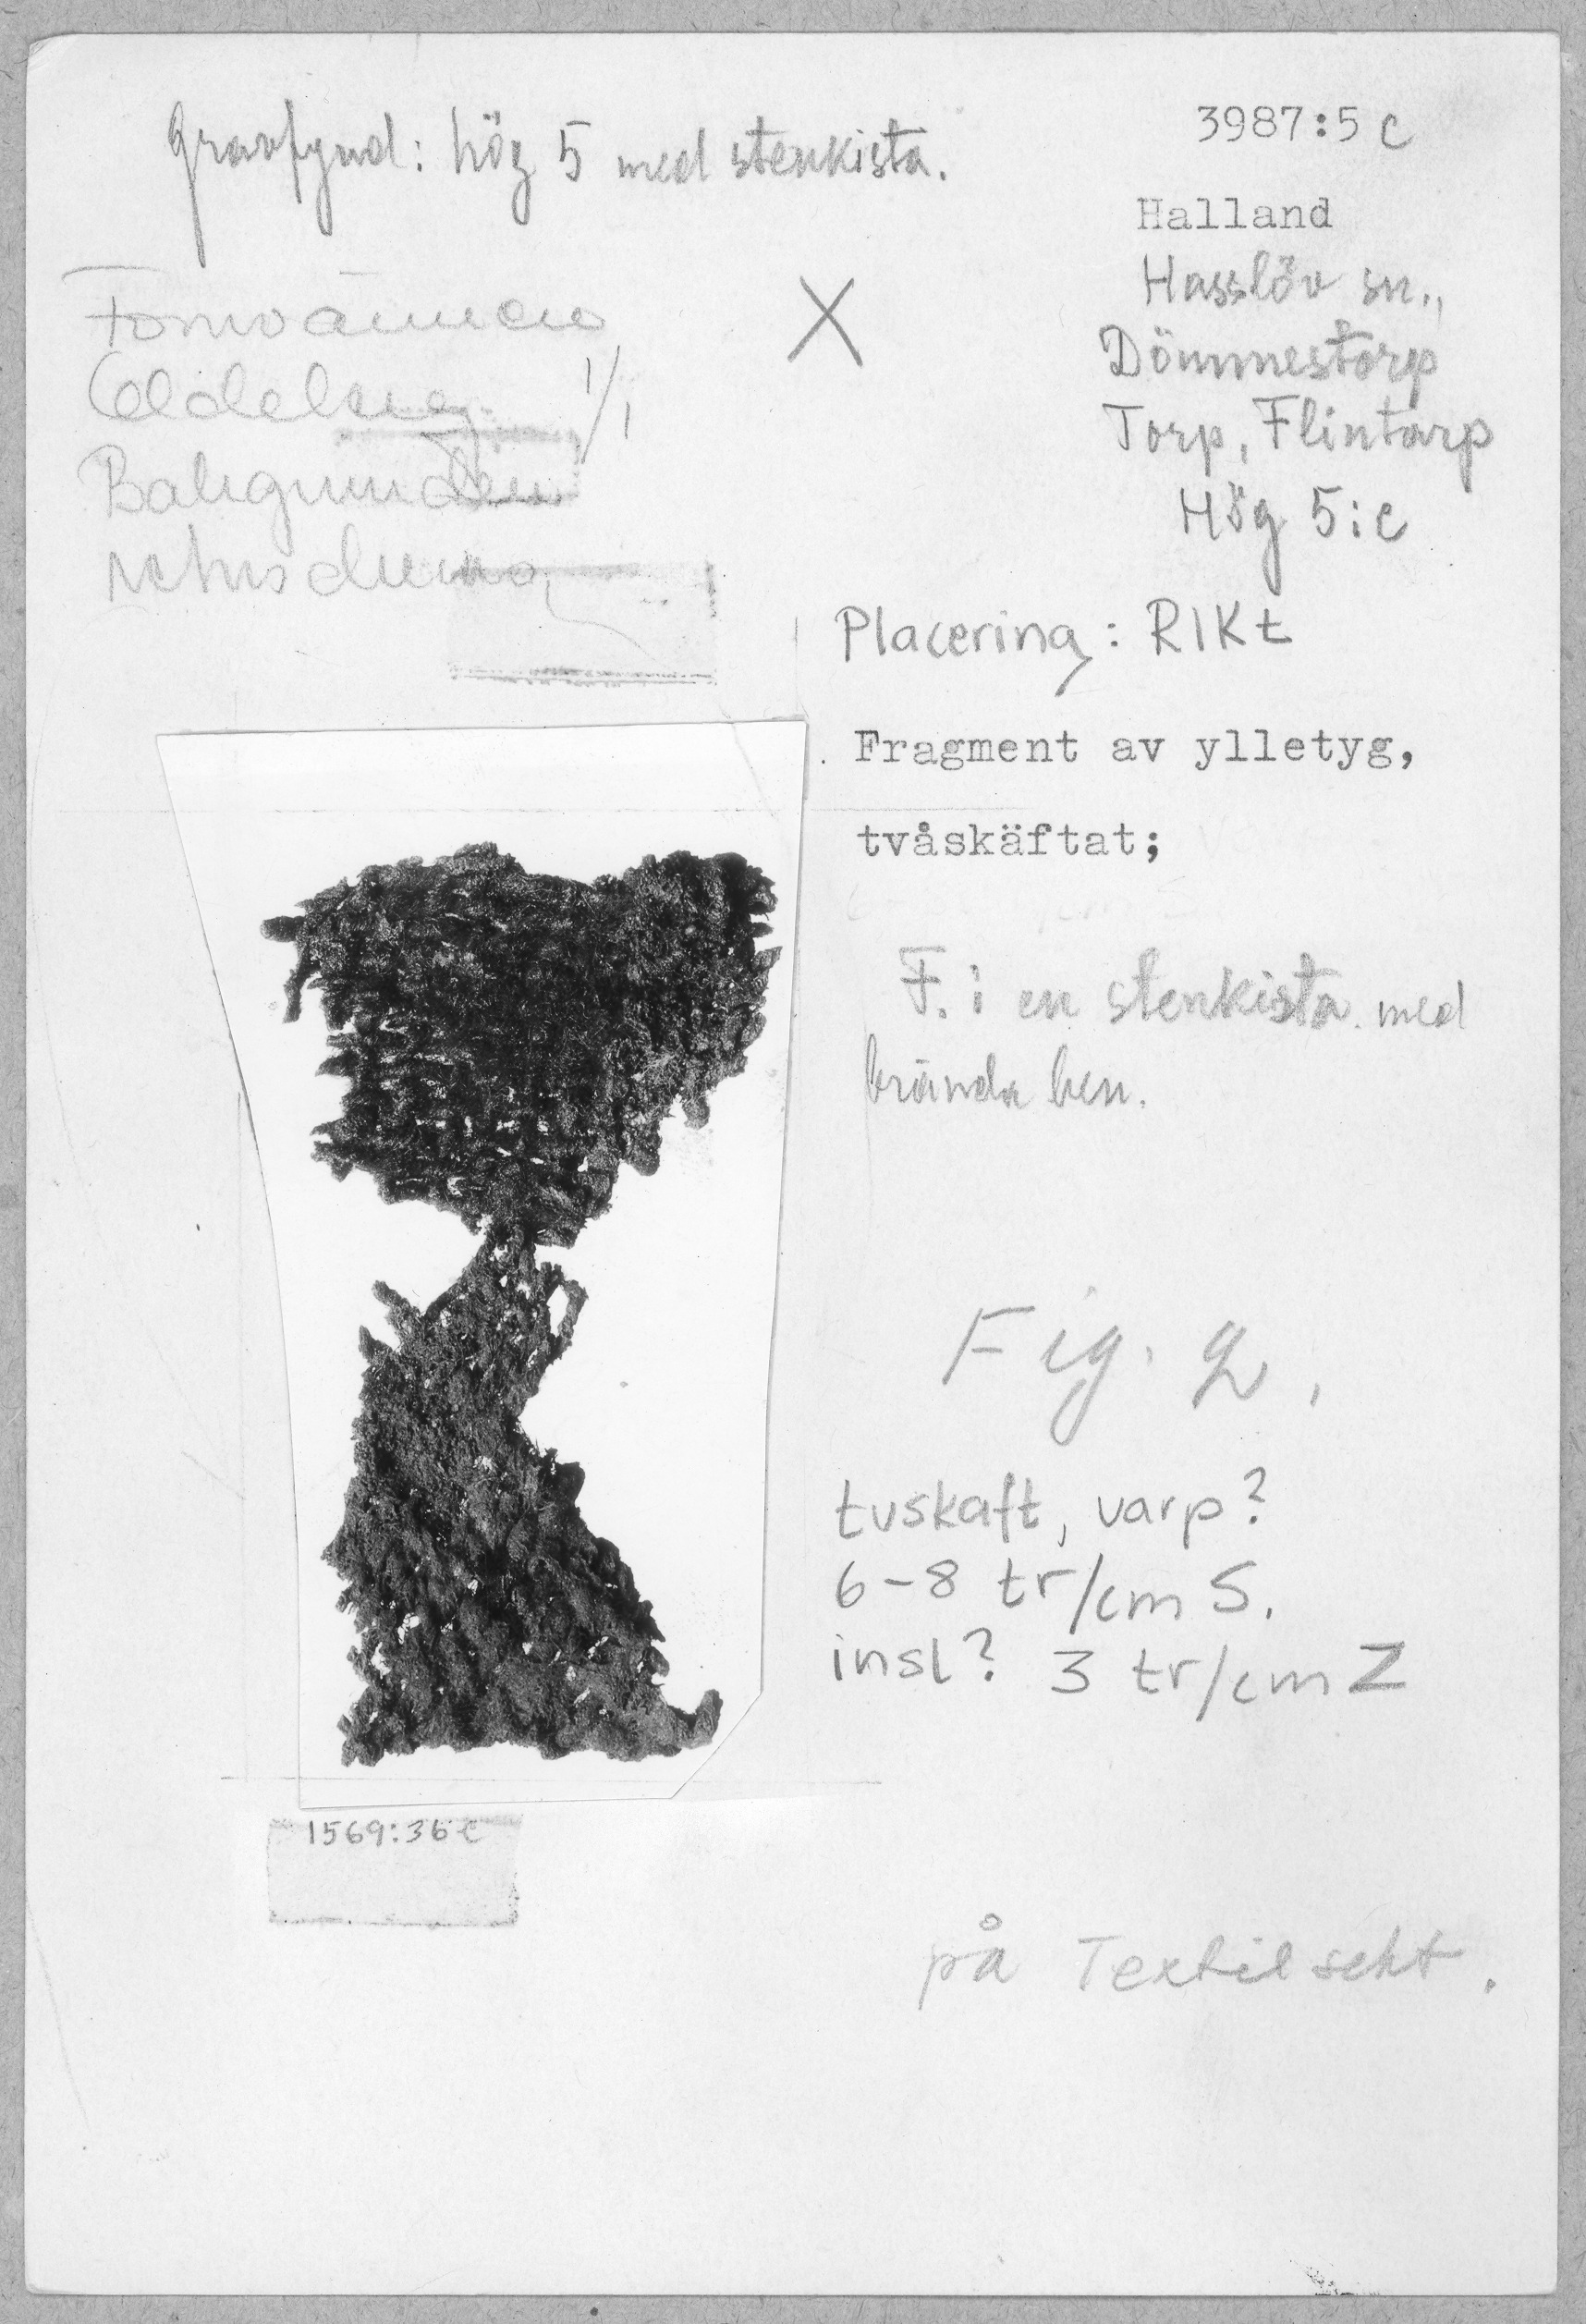 Gravfynd: hög 5 med stenkista.
3987:5 c
Halland
Hasslöv sn.,
Dömmestorp
Torp, Flintarp
Hög 5:c
X
Fornvännen
1/1
Bakgrunden
Placering: RIKt
Fragment av ylletyg,
tvåskäftat;
F. i en stenkista med
brända ben.
Fig. 2,
tuskaft, varp?
6-8 tr/cm S.
insl? 3 tr/cm Z
1569:36 c
på Textilsekt.